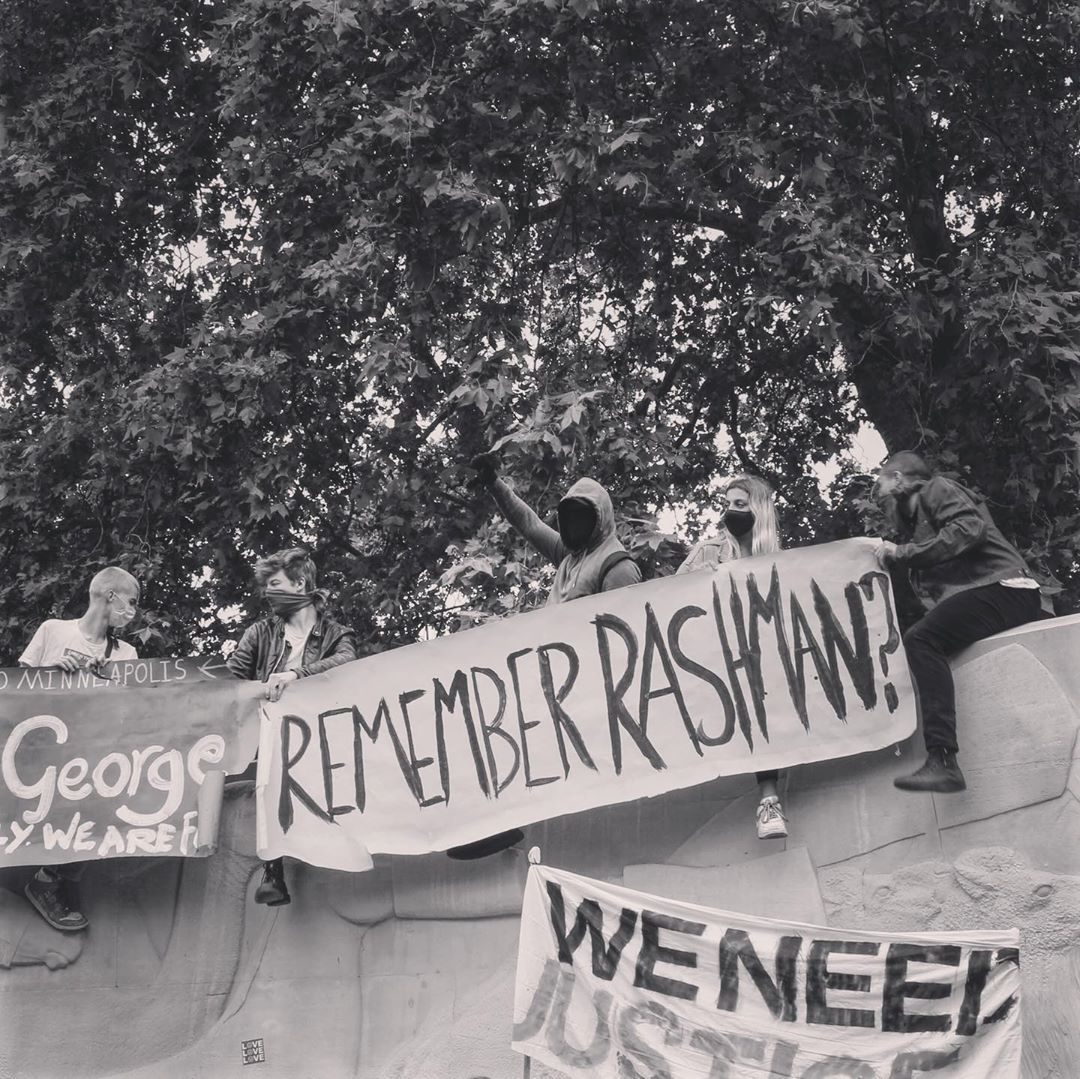 MINNEAPOLIS ←
George
WE ARE
REMEMBER RASHMAN?
WE NEED
JUSTICE
LOVE
LOVE
LOVE